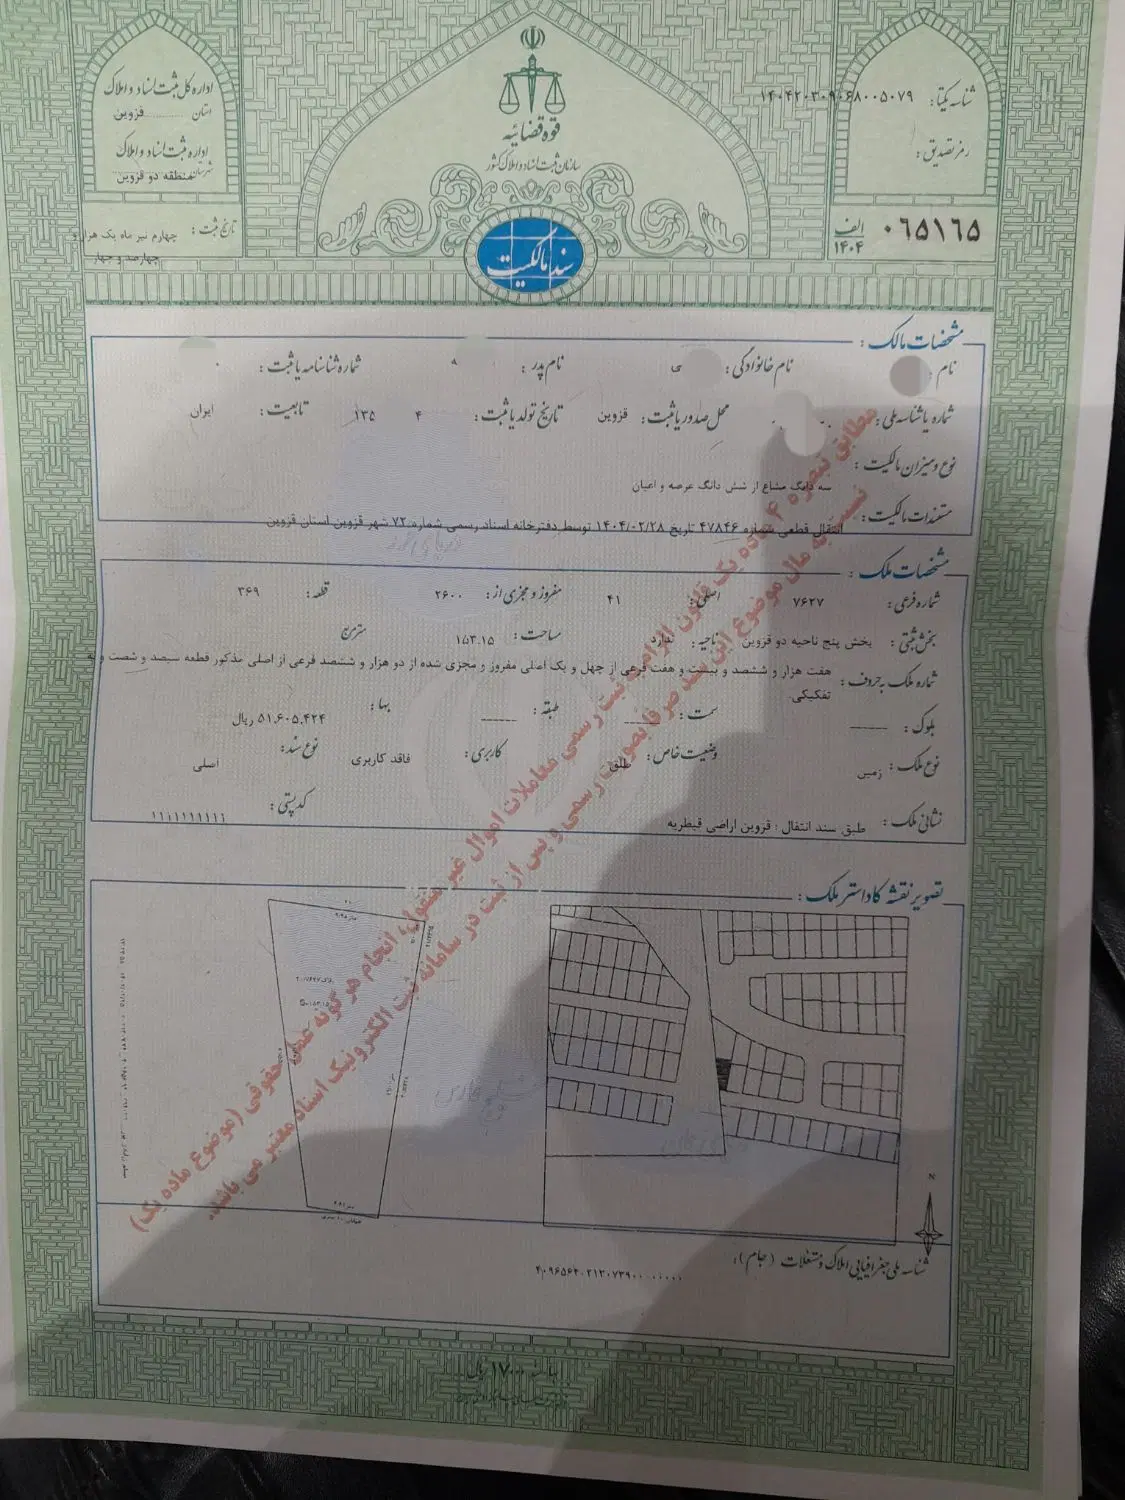 اداره کل ثبت اسناد و املاک
استان ........... قزوین
اداره ثبت اسناد و املاک
شهرستان منطقه دو قزوین
تاریخ ثبت : چهارم تیر ماه یک هزار و
چهارصد و چهار
قوه قضائیه
سازمان ثبت اسناد و املاک کشور
سند مالکیت
شناسه یکتا: ۱۴۰۴۲۰۳۰۹۰۶۸۰۰۵۰۷۹
رمز تصدیق :
۰۶۵۱۶۵ الف ۱۴۰۴
مشخصات مالک :
نام : نام خانوادگی : ی نام پدر : شماره شناسنامه یا ثبت :
شماره یا شناسه ملی : محل صدور یا ثبت : قزوین تاریخ تولد یا ثبت : ۴ ۱۳۵ تابعیت : ایران
نوع و میزان مالکیت :
سه دانگ مشاع از شش دانگ عرصه و اعیان
مستندات مالکیت :
انتقال قطعی شماره ۴۷۸۴۶ تاریخ ۱۴۰۴/۰۲/۲۸ توسط دفترخانه اسناد رسمی شماره ۷۲ شهر قزوین استان قزوین
مشخصات ملک :
شماره فرعی : ۷۶۲۷ اصلی : ۴۱ مفروز و مجزی از : ۲۶۰۰ قطعه : ۳۶۹
بخش ثبتی : بخش پنج ناحیه دو قزوین ناحیه : ندارد مساحت : ۱۵۳.۱۵ مترمربع
شماره ملک به حروف : هفت هزار و ششصد و بیست و هفت فرعی از چهل و یک اصلی مفروز و مجزی شده از دو هزار و ششصد فرعی از اصلی مذکور قطعه سیصد و شصت و نه
تفکیکی
بلوک : سمت : طبقه : بها : ۵۱,۶۰۵,۴۲۴ ریال
نوع ملک : زمین وضعیت خاص : طلق کاربری : فاقد کاربری نوع سند : اصلی
نشانی ملک : طبق سند انتقال : قزوین اراضی قیطریه کدپستی : ۱۱۱۱۱۱۱۱۱۱
تصویر نقشه کاداستر ملک :
مطابق تبصره ۴ ماده یک قانون الزام به ثبت رسمی معاملات اموال غیر منقول، انجام هر گونه عمل حقوقی (موضوع ماده یک)
نسبت به مال موضوع این سند صرفاً بصورت رسمی و پس از ثبت در سامانه ثبت الکترونیک اسناد معتبر می باشد.
N
شناسه ملی جغرافیایی املاک و مستغلات (جام) :